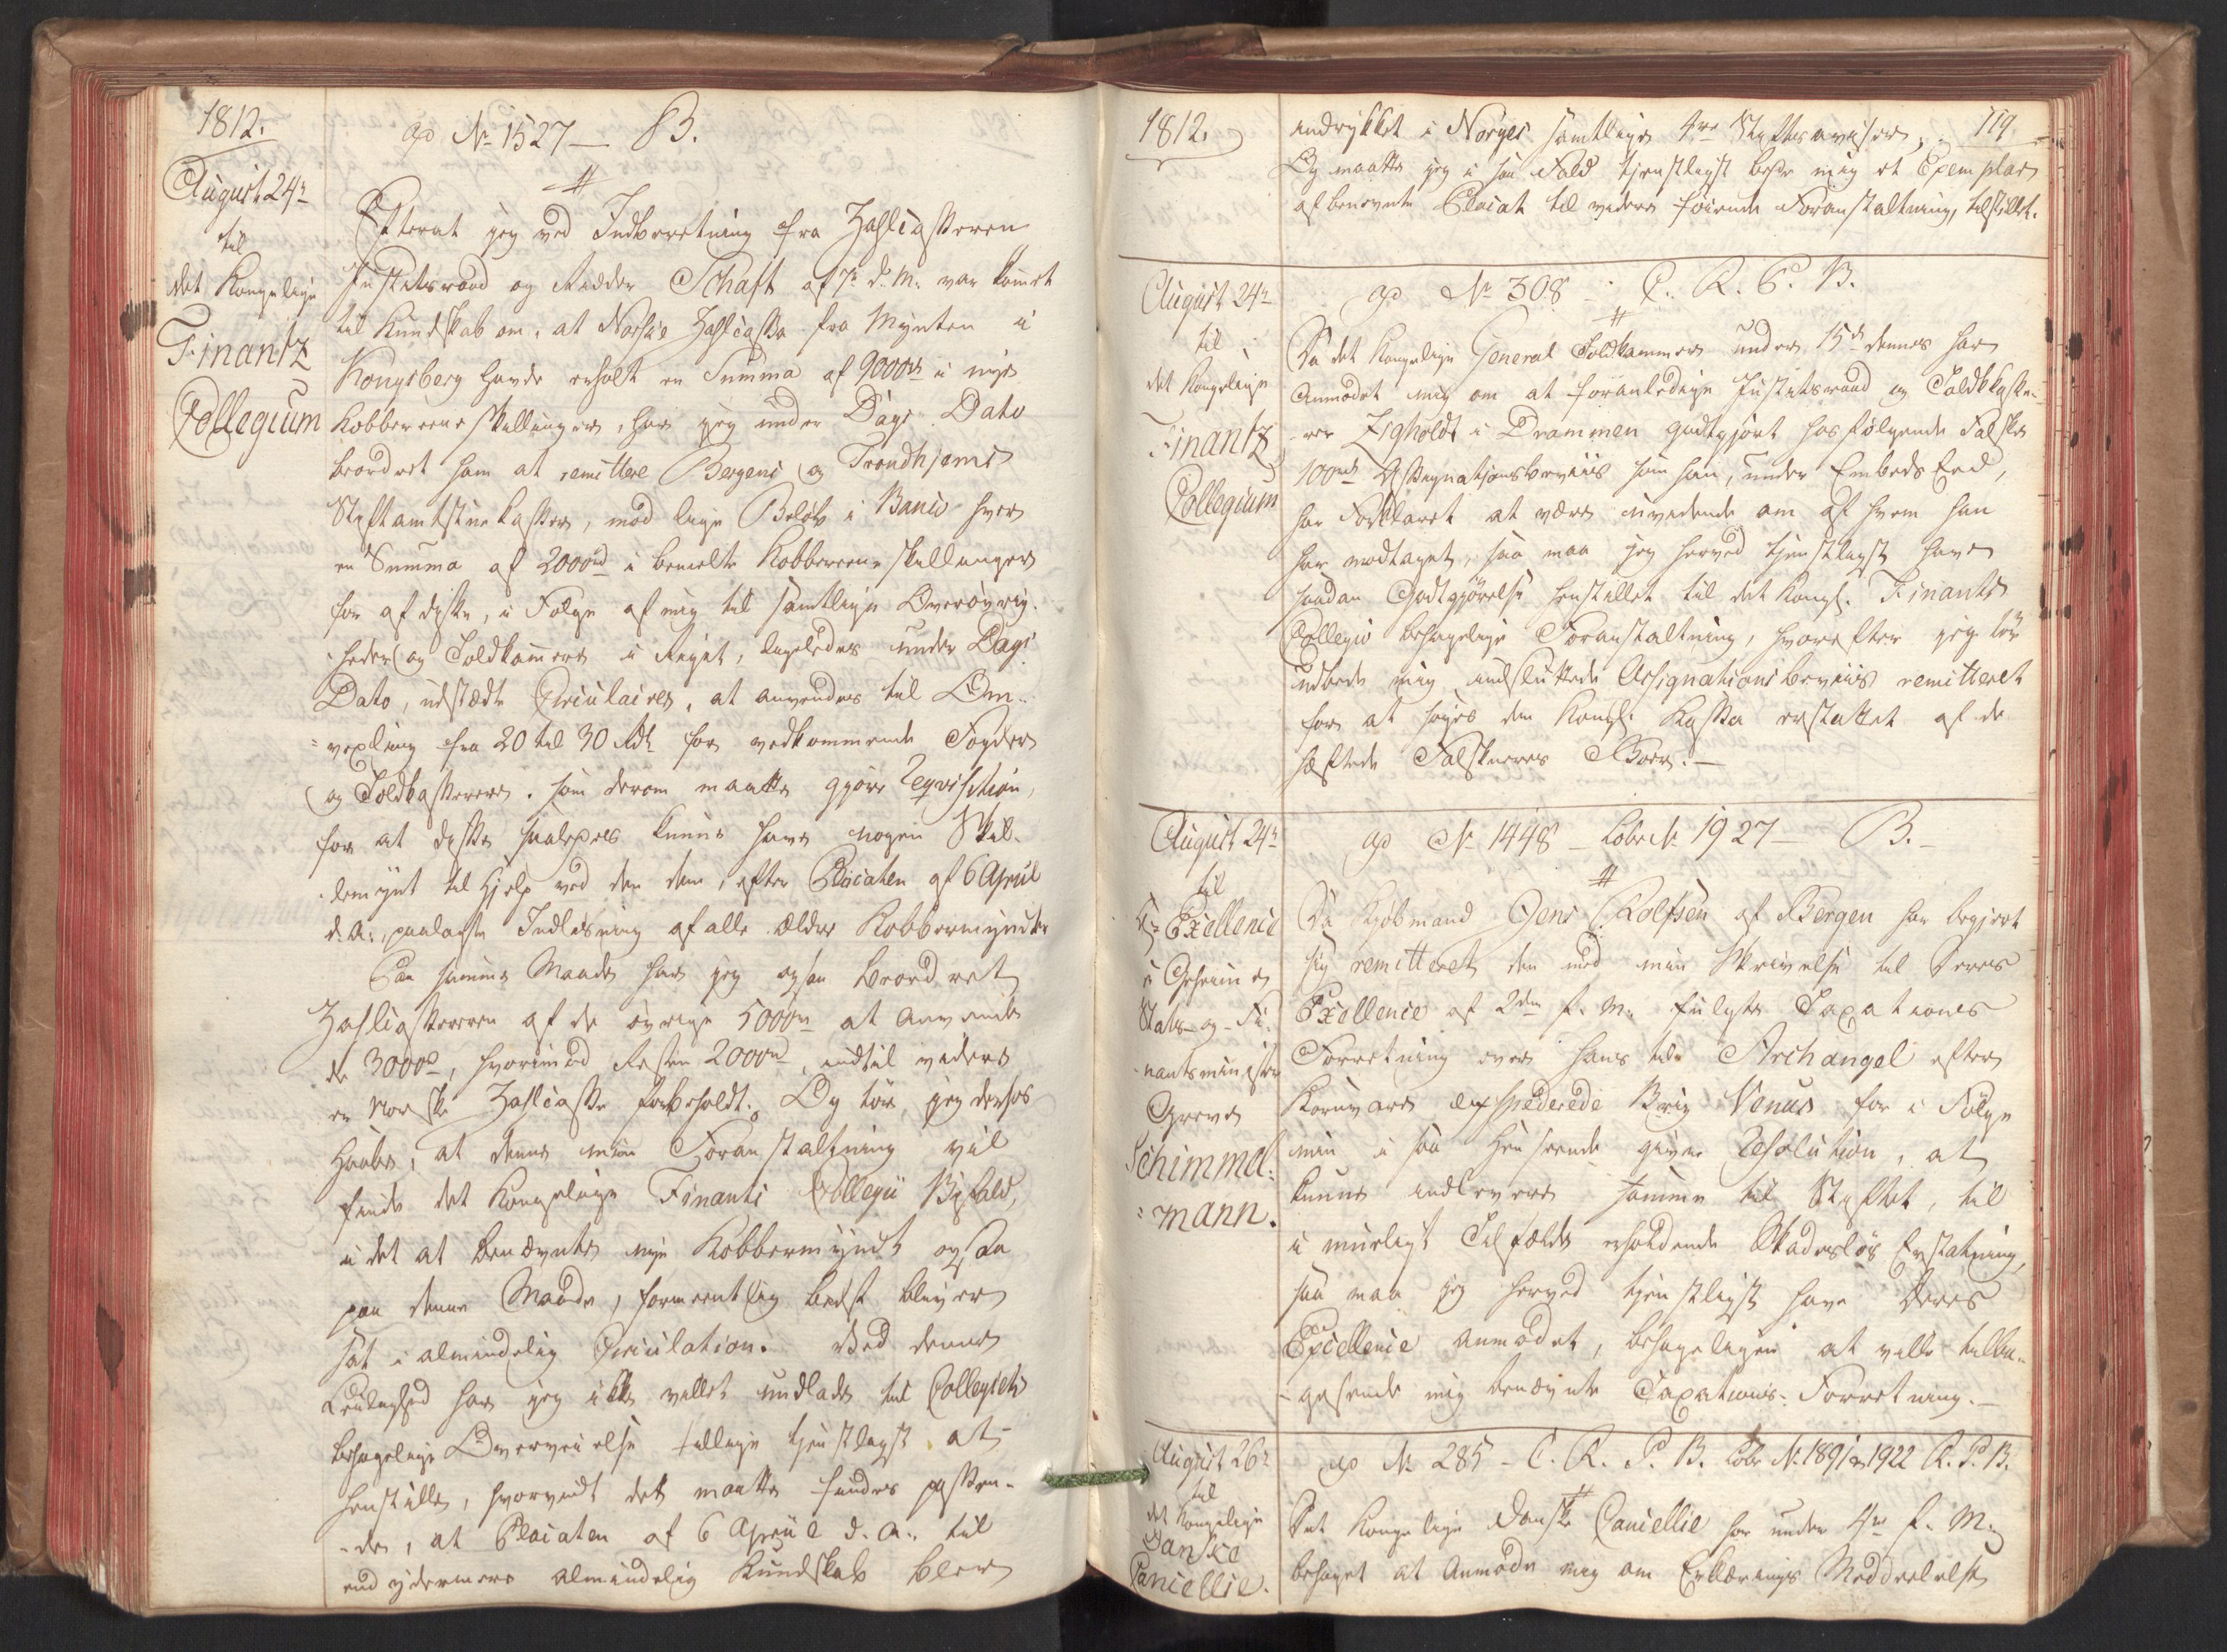 1812.
ad No 1527 — B.
August 24de
til
det Kongelige
Finantz
Collegium
Efterat jeg ved Indberetning fra Zahlcasserer
Justitsraad og Ridder Schaft af 7de d. M. var kommet
til Kundskab om, at Norske Zahlcasse fra Mynten i
Kongsberg havde erholdt en Summa af 9000 rd i nye
Kobbereenskillinger, har jeg under Dags Dato
beordret ham at remittere Bergens og Trondhjems
Stiftamtstuekasser, mod lige Beløb i Banco hver
en Summa af 2000 rd i bemelte Kobbereenskillinger
for af disse, i Følge af mig til samtlige Overøvrig-
heder og Toldkamere i Riget, ligeledes under Dags
Dato, udstædte Circulairer, at anvendes til Om-
vexling fra 20 til 30 Rdr for vedkommende Fogder
og Toldkasserere, som derom maatte gjøre Reqvisition,
for at disse saaledes kunne have nogen Skil-
lemynt til Hjelp ved den dem, efter Placaten af 6 April
d. A. paalagte Indløsning af alle ældre Kobbermynter
Paa samme Maade har jeg ogsaa beordret
Zahlcassereren af de øvrige 5000 rd at anvende
de 3000 rd, hvorimod Resten 2000 rd, indtil videre
er Norske Zahlcasse forbeholdt. Og tør jeg derhos
haabe, at denne min Foranstaltning vil
finde det Kongelige Finants Collegii Byfald,
i det at benævnte nye Kobbermynt ogsaa
paa denne Maade, formeentlig bedst bliver
sat i almindelig Circulation. Ved denne
Leilighed har jeg ikke villet undlade til Collegiets
behagelige Overveielse tillige tjenstligst at
henstille, hvorvidt det maatte findes passen-
de, at Placaten af 6 April d. A., til
end ydermere almindelig Kundskab blev
1812.
119
indrykket i Norges samtlige 4re Stiftsaviser,
Og maatte jeg i saa Fald tjenstligst bede mig et Exemplar
af benævnte Placat til videre føiende Foranstaltning, tilstillet.
August 24de
til
det Kongelige
Finantz
Collegium
ad No 308 — C. R. P. B.
Da det Kongelige General Toldkammer under 15de dennes har
anmodet mig om at foranledige Justitsraad og Toldkasse-
rer Zigholdt i Drammen godtgjort hosfølgende falske
100 rd Assignationsbeviis som han, under Embeds Eed,
har forklaret at være uvidende om af hvem han
har modtaget, saa maa jeg herved tjenstligst have
saadan Godtgjørelse henstillet til det Kongl. Finants
Collegii behagelige Foranstaltning, hvorefter jeg tør
udbede mig indsluttede Assignationsbeviis remitteret
for at søges den Kongl. Kasse erstattet af de
hæftede Falskneres Boer. —
August 24de
til
Hs Excellence
Hr Geheime
Stats- og Fi-
nantsminister
Greve
Schimmel-
mann.
ad No 1448 — Løbe No 1927 — B. —
Da Kjøbmand Jens Rolfsen af Bergen har begjert
sig remitteret den med min Skrivelse til Deres
Excellence af 2den f. M. fulgte Taxations
Forretning over hans til Archangel efter
Kornvarer expederede Brig Venus for i Følge
min i saa Henseende givne Resolution, at
kunne indlevere samme til Stiftet, til
i mueligt Tilfælde erholdende skadesløs Erstatning,
saa maa jeg herved tjenstligst have Deres
Excellence anmodet, behageligen at ville tilba-
gesende mig benævnte Taxations-Forretning. —
August 26de
til
det Kongelige
Danske
Cancellie.
ad No 285 — C. R. P. B. Løbe No 1891 og 1922 R. P. B.
Det Kongelige Danske Cancellie har under 4de f. M.
behaget at anmode mig om Erklærings Meddelelse